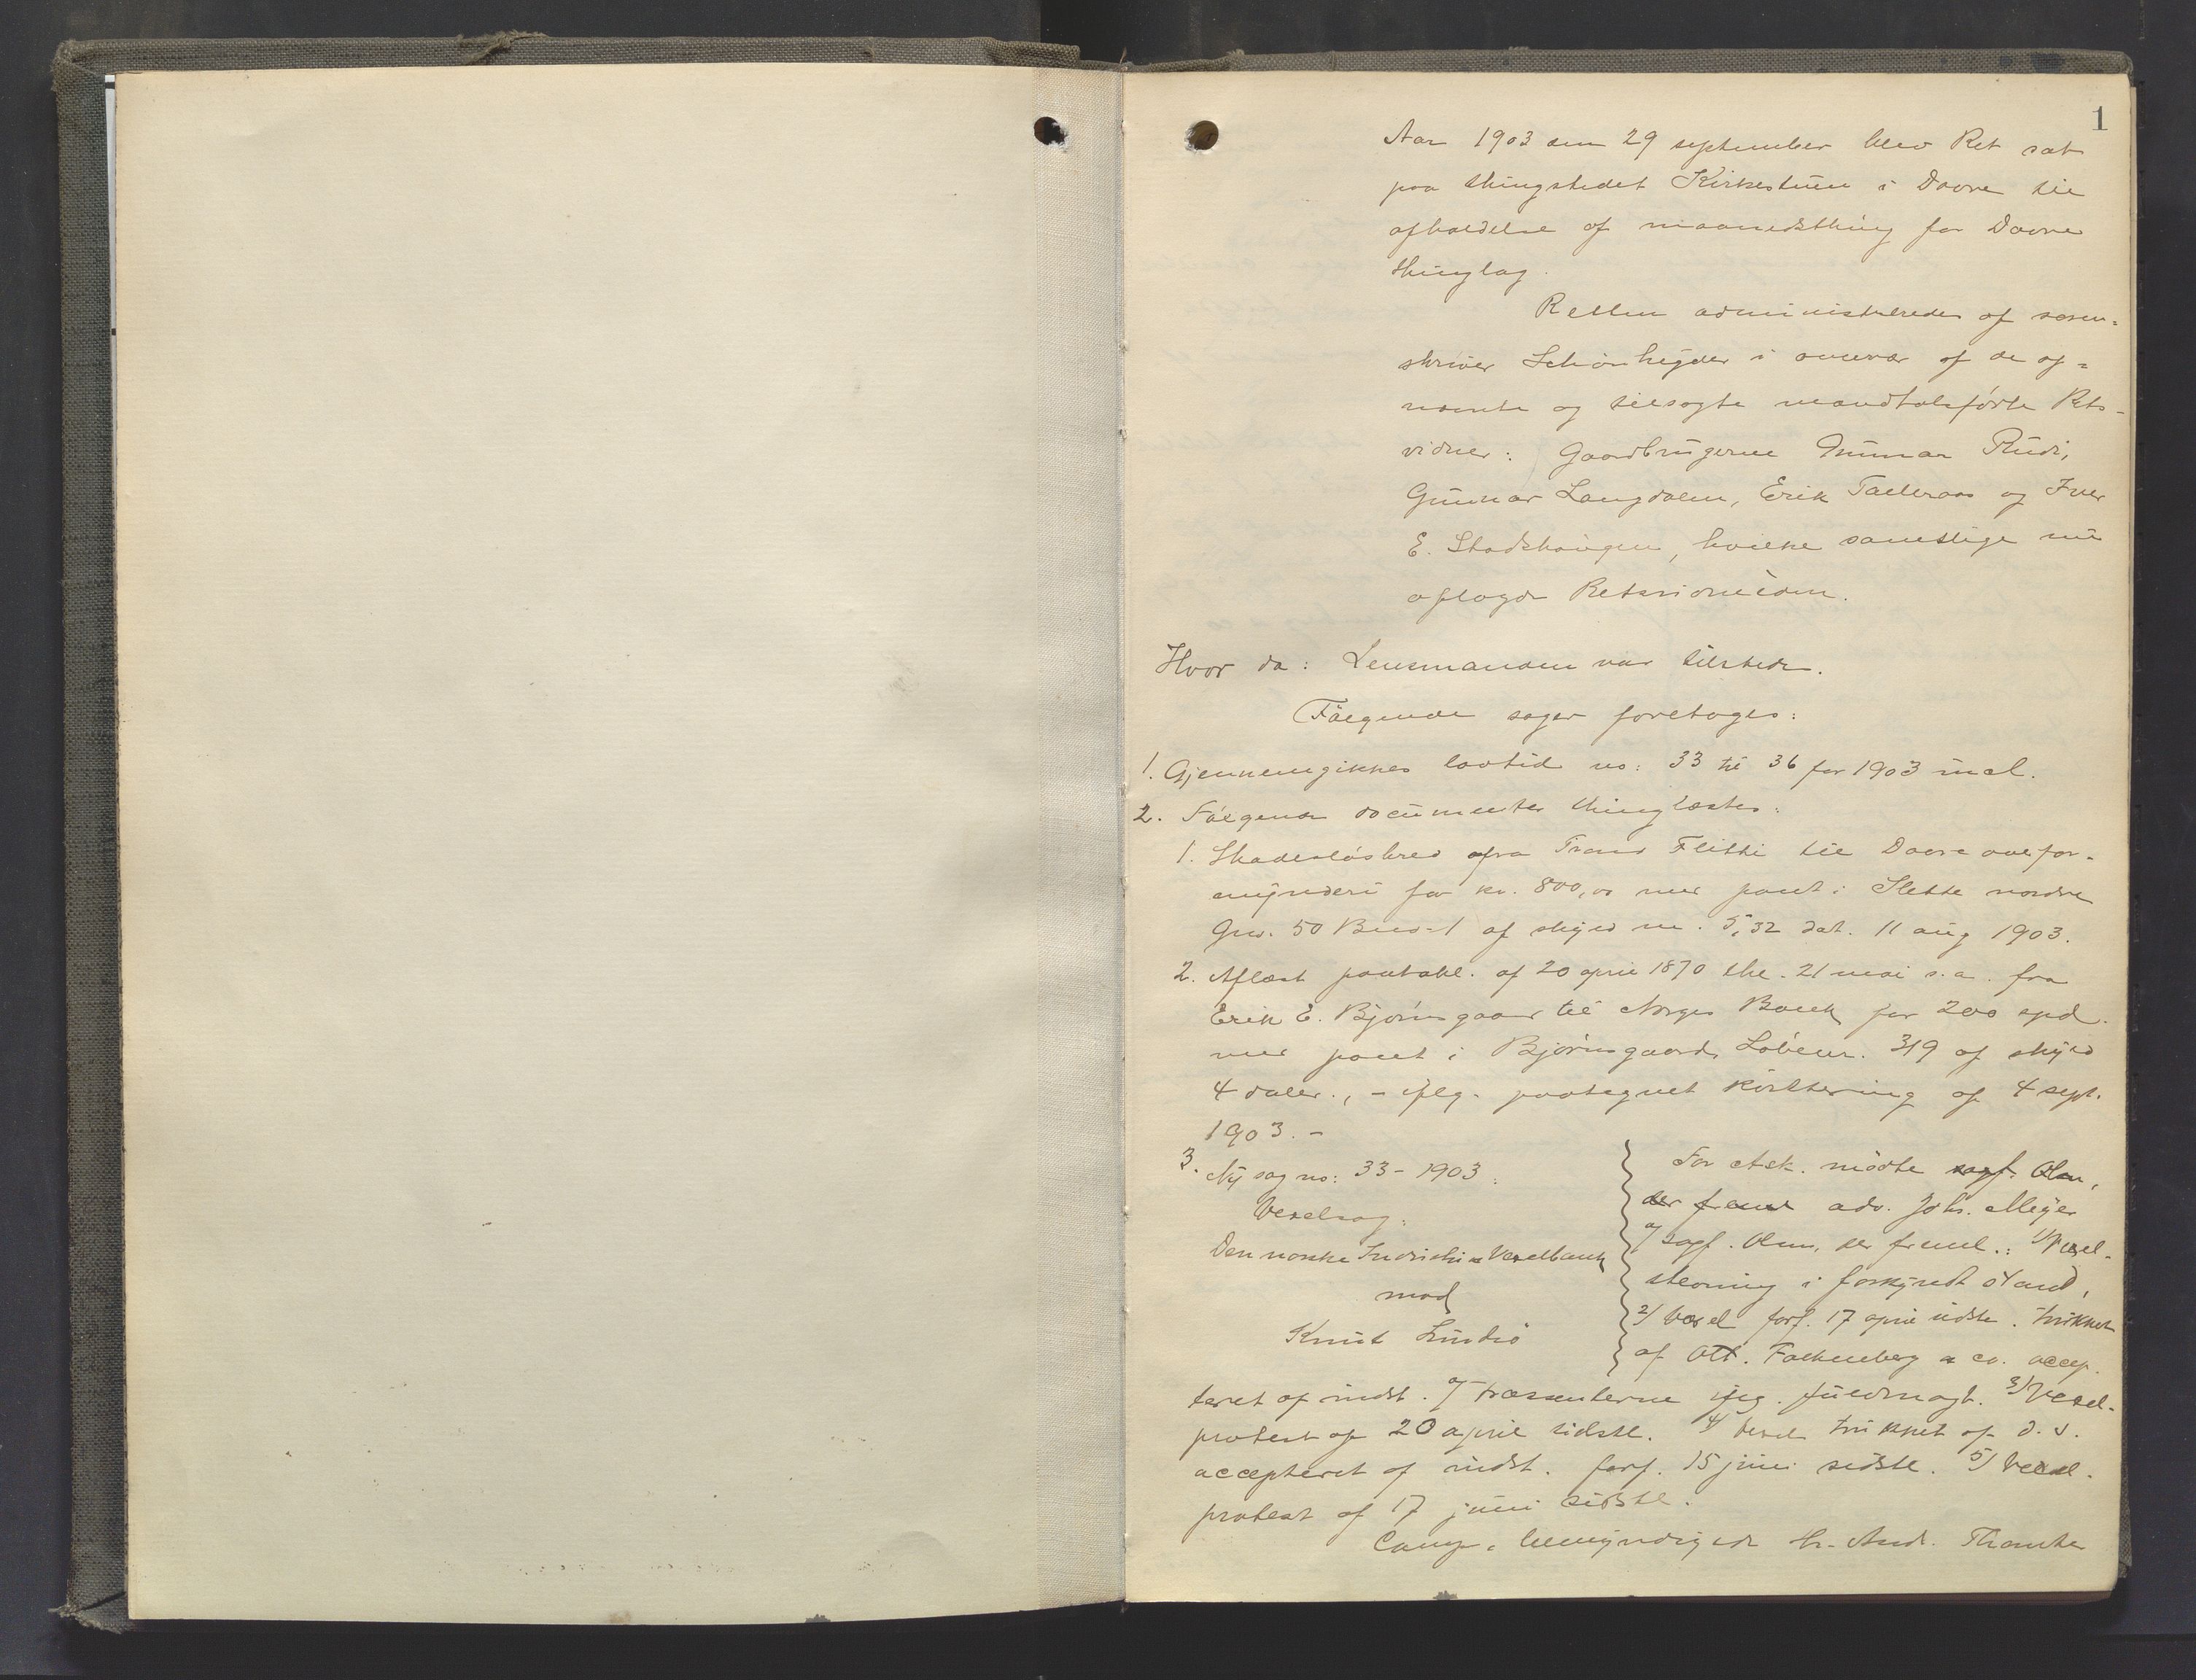 1
Aar 1903 den 29 september blev Ret sat
paa thingstedet Kirkestuen i Dovre til
afholdelse af maanedsthing for Dovre
thinglag.
Retten administreredes af soren-
skriver Schönheyder i overvær af de op-
nævnte og tilsagte mandtalsførte Rets-
vidner: Gaardbrugerne Gunnar Rudi,
Gunnar Langdalen, Erik Talleraas og Iver
E. Stadshaugen, hvilke samtlige nu
aflagde Retsvidneeden.
Hvor da: Lensmanden var tilstede.
Følgende sager foretoges:
1. Gjennemgikkes lovtid no: 33 til 36 for 1903 incl.
2. Følgende documenter thinglæstes:
1. Skadesløsbrev fra Trond Flitti til Dovre overfor-
mynderi for kr. 800,00 med pant i Slette nordre
Gno. 50 Bno 1 af skyld m. 5,32 dat. 11 aug 1903.
2. Aflæst pantobl. af 20 april 1870 thl. 21 mai s.a. fra
Erik E. Bjørnsgaard til Norges Bank for 200 spd.
med pant i Bjørnsgaard, Løbenr. 319 af skyld
4 daler., - ifølg. paategnet kvittering af 4 sept.
1903. -
3. Ny sag no: 33 - 1903.
Vexelsag:
Den norske Industri & Vexelbank
mod
Knut Lindsø
For citk. mødte sagf. Olsen,
der freml adv. Johs. Meyer
v/ sagf. Olsen, der freml.: 1/ Vexel-
stevning i forkyndt stand,
2/ Vexel forf. 17 april sidstl. trukket
af Ott. Falkenberg & co. accep-
teret af indst. og præsenterne ifølg. fuldmagt. 3/ Vexel-
protest af 20 april sidstl. 4/ Vexel trukket af d. s.
accepteret af indst. forf. 15 juni sidstl. 5/ Vexel-
protest af 17 juni sidstl.
Comp. bemyndigede hr. And.